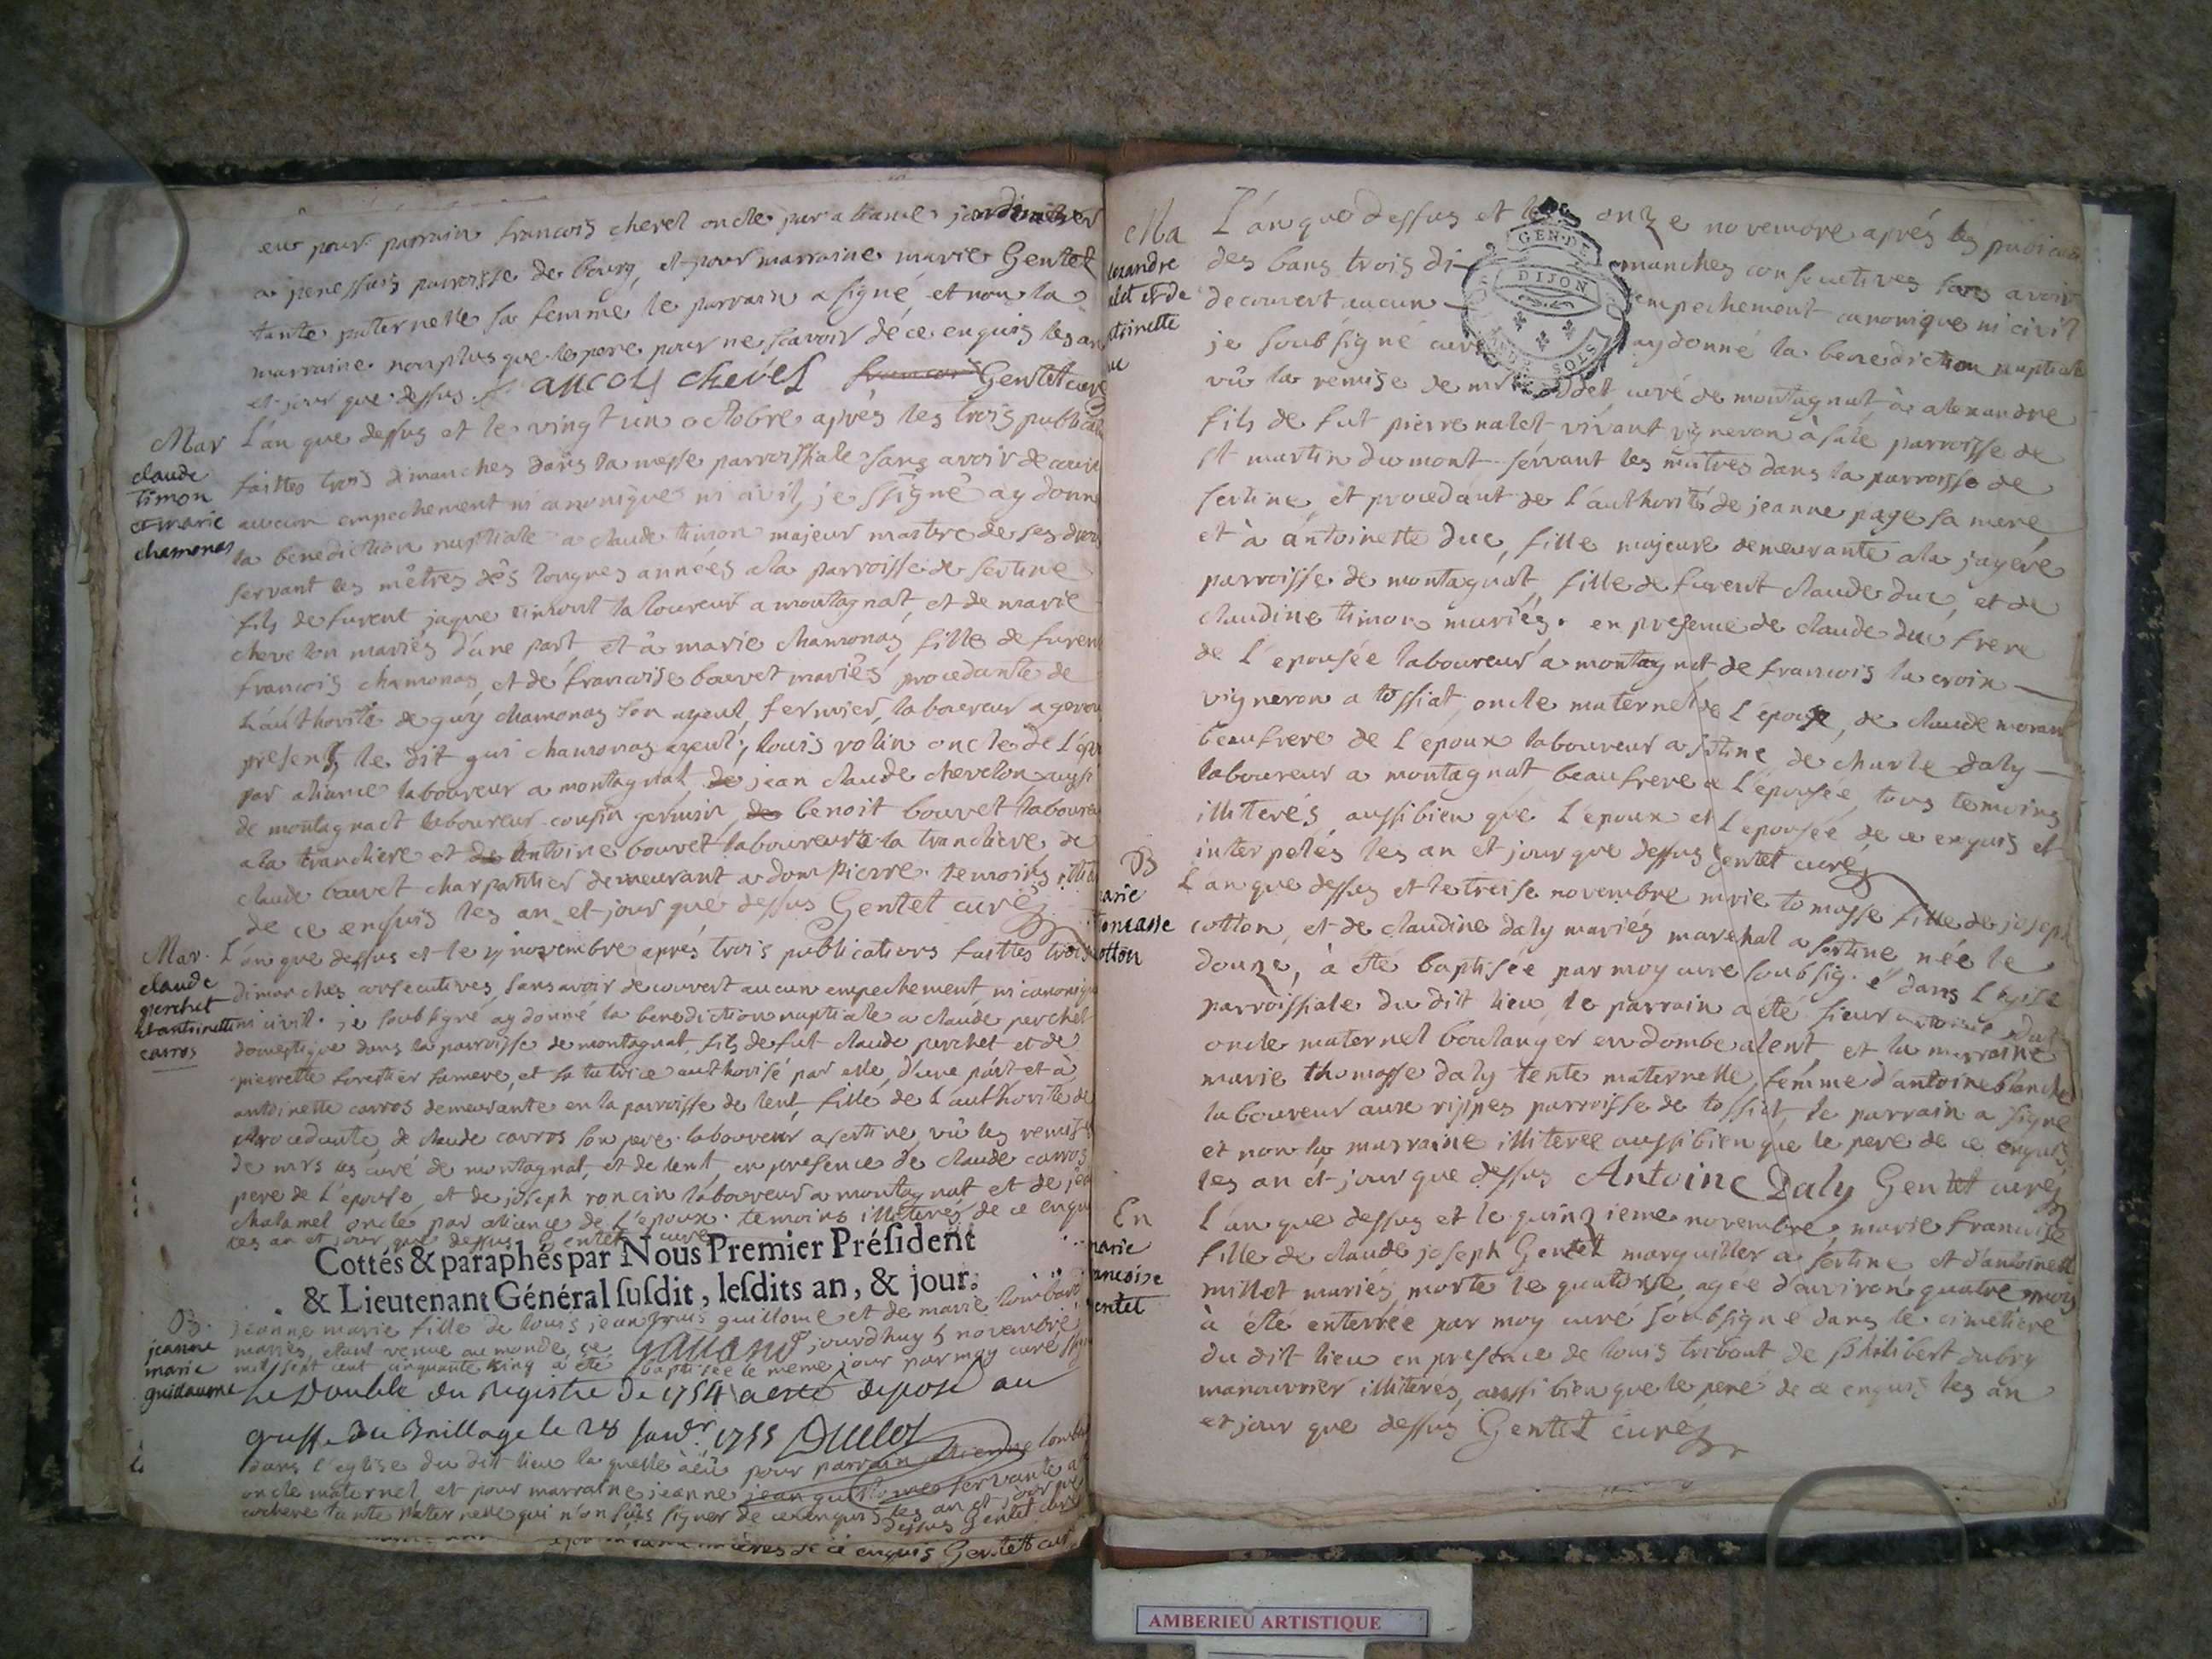 eu pour parrain francois cheret oncle par aliance jardinier
a penessuis parroisse de bourg, et pour marraine marie Gentet
tante paternelle sa femme le parrain a signé et non la
marraine nonplus que le pere pour ne scavoir de ce enquis les an
et jour que dessus francois cherel Gentet curé
Mar
claude
timon
et marie
chamonas
L'an que dessus et le vingt un octobre aprés les trois publica
faittes trois dimanches dans la messe parroissiale sans avoir decouv
aucun empechement ni canonique ni civil, je ssigné ay donné
la benediction nuptiale a claude timon majeur maitre de ses
servant les mêtres dês longues années a la parroisse de sertine
fils de furent jaque timont laboureur a montagnat, et de marie
chevelon mariés d'une part et à marie chamonas, fille de furent
francois chamonas, et de francoise bouvet mariês procedante de
L'authorité de guy chamonas son ayeul, fermier, laboureur a
presents le dit gui chamonas ayeul, louis rolin oncle de L'ep
par aliance laboureur a montagnat, de jean claude chevelon aussi
de montagnact laboureur cousin germain, de benoit bouvet laboureur
a la tranchere et de Antoine bouvet laboureur a la tranchere de
claude bouvet charpantier demeurant a dompierre. temoins
de ce enquis les an et jour que dessus Gentet curé
Mar.
claude
perchet
et antoinette
carros
L'an que dessus et le novembre aprés trois publications faittes trois
dimanches consecutives sans avoir decouvert aucun empechement, ni canonique
ni civil. je soubsigné ay donné la benediction nuptiale a claude perchet
domestique dans la parroisse de montagnat, fils de fut claude perchet et de
pierrette forestier sa mere, et sa tutrice authorisé par elle, d'une part et à
antoinette carros demeurante en la parroisse de lent, fille de L'authorité de
procedante, de claude carros son pere laboureur a sertine, vû les remises
de mrs les curé de montagnat, et de lent, en presence de claude carros
pere de L'epouse, et de joseph roncin laboureur a montagnat et de
chalamel oncle par aliance de L'epoux. temoins illiterés de ce enquis
les an et jour que dessus Gentet curé
Cottés & paraphés par Nous Premier Président
& Lieutenant Général susdit, lesdits an, & jour.
B.
jeanne
marie
guidaume
Jeanne marie fille de louis jean guillome et de marie lombard
mariés, etant venue au monde, ce jourdhuy 5 novembre
mil sept cent cinquante king a ete baptisée le meme jour par moy curé
Le Double du Registre de 1754 a eté deposé au
greffe du Baillage le 28 1755
dans l'eglise du dit lieu la quelle à eû pour parrain
oncle maternel, et pour marraine jeanne jean guillome servante a
tante paternelle qui n'on sûs signer de ce enquis les an et jour que
dessus Gentet curé
de ce enquis Gentet curé
Ma
lexandre
alet et de
ntoinette
uc
L'an que dessus et le onze novembre aprés les publica
des bans trois dimanches consecutives sans avoir
decouvert aucun empechement canonique ni civil
GEN·DE
DIJON
je soubsigné curé ay donné la benediction nuptiale
vû la remise de mr curé de montagnat à alexandre
fils de fut pierre nalet vivant vigneron à sale parroisse de
st martin du mont servant les mitres dans la parroisse de
sertine, et procedant de L'authorité de jeanne page sa mere
et à antoinette duc, fille majeure demeurante a la jayere
parroisse de montagnat, fille de furent claude duc, et de
claudine timon mariés. en presence de claude duc frere
de L'epousée laboureur a montagnat, de francois la croix
vigneron a tossiat, oncle maternel de L'epoux, de claude moran
beaufrere de L'epoux laboureur a sertine de charle daly
laboureur a montagnat beaufrere a L'epousée, tous temoins
illiterés, aussi bien que L'epoux et L'epousée de ce enquis et
interpelés les an et jour que dessus Gentet curé
B
arie
tomasse
otton
L'an que dessus et le treise novembre marie tomasse fille de joseph
cotton, et de claudine daly mariés marechal a sertine née le
douze, à été baptisée par moy curé soubsigné dans L'eglise
parroissiale du dit lieu, le parrain a été sieur antoine daly
oncle maternel boulanger en dombe a lent, et la marraine
marie thomasse daly tente maternelle, femme d'antoine blanchet
laboureur aux rippes parroisse de tossiat, le parrain a signé
et non la marraine illiteree aussi bien que le pere de ce enquis
les an et jour que dessus Antoine Daly Gentet curé
En
marie
francoise
entet
L'an que dessus et le quinzieme novembre, marie francoise
fille de claude joseph Gentet marguillier a sertine et d'antoinette
millet mariés, morte le quatorse, agée d'environ quatre mois
à été enterrée par moy curé soubsigné dans le cimetiere
du dit lieu en presence de louis tribout de philibert dubry
manouvrier illiterés, aussi bien que le pere de ce enquis les an
et jour que dessus Gentet curé
AMBERIEU ARTISTIQUE